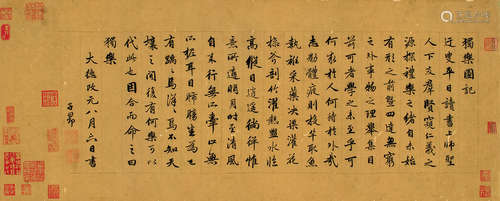 獨樂園記
迂叟平日讀書上師聖
人下友群賢窺仁義之
源探禮樂之緒自未始
有形之前暨四達無窮
之外事物之理舉集目
前可者學之未至乎可
何求於人何待於外哉
志勌體疲則投竿取魚
執衽采藥決渠灌花
操斧剖竹濯熱盥水臨
高縱目逍遙徜徉惟
意所適明月時至清風
自来行無所牽止無
所柅耳目肺腸為己
有踽々焉洋々焉不知天
壤之間復有何樂可以
代此也因合而命之曰
獨樂
大德改元八月六日書
子昂